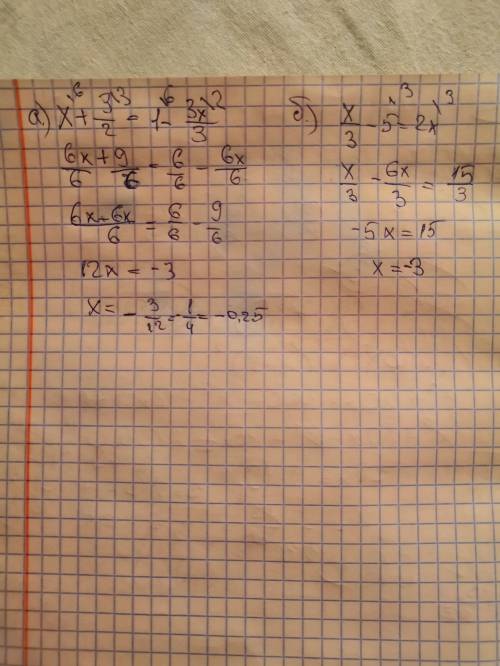 а.) x\⁶ + 3/2\³ = 1\⁶ - 3x/3\²
6x/6 + 9/6 = 6/6 - 6x/6
6x+6x/6 = 6/6 - 9/6
12x = -3
x = - 3/12 = - 1/4 = -0,25
б.) x/3 - 5\³ = 2x\³
x/3 - 6x/3 = 15/3
-5x = 15
x = -3